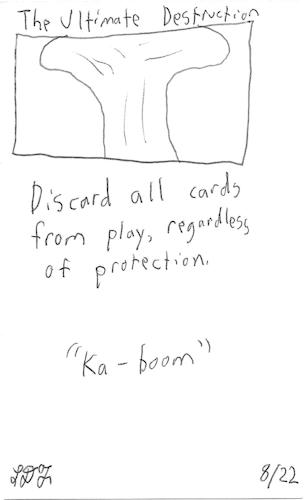 The Ultimate Destruction
Discard all cards
from play, regardless
of protection.
"Ka-boom"
8/22